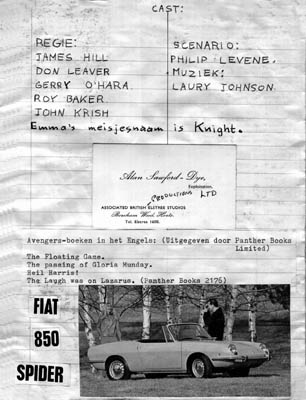 CAST:
REGIE:
JAMES HILL
DON LEAVER
GERRY O'HARA.
ROY BAKER
JOHN KRISH
SCENARIO:
PHILIP LEVENE.
MUZIEK:
LAURY JOHNSON.
Emma's meisjesnaam is Knight.
Alan Sawford-Dye,
Exploitation,
PRODUCTIONS LTD
ASSOCIATED BRITISH ELSTREE STUDIOS
Boreham Wood, Herts.
Tel. Elstree 1600.
Avengers-boeken in het Engels: (Uitgegeven door Panther Books
Limited)
The Floating Game.
The passing of Gloria Munday.
Heil Harris!
The Laugh was on Lazarus. (Panther Books 2175)
FIAT
850
SPIDER